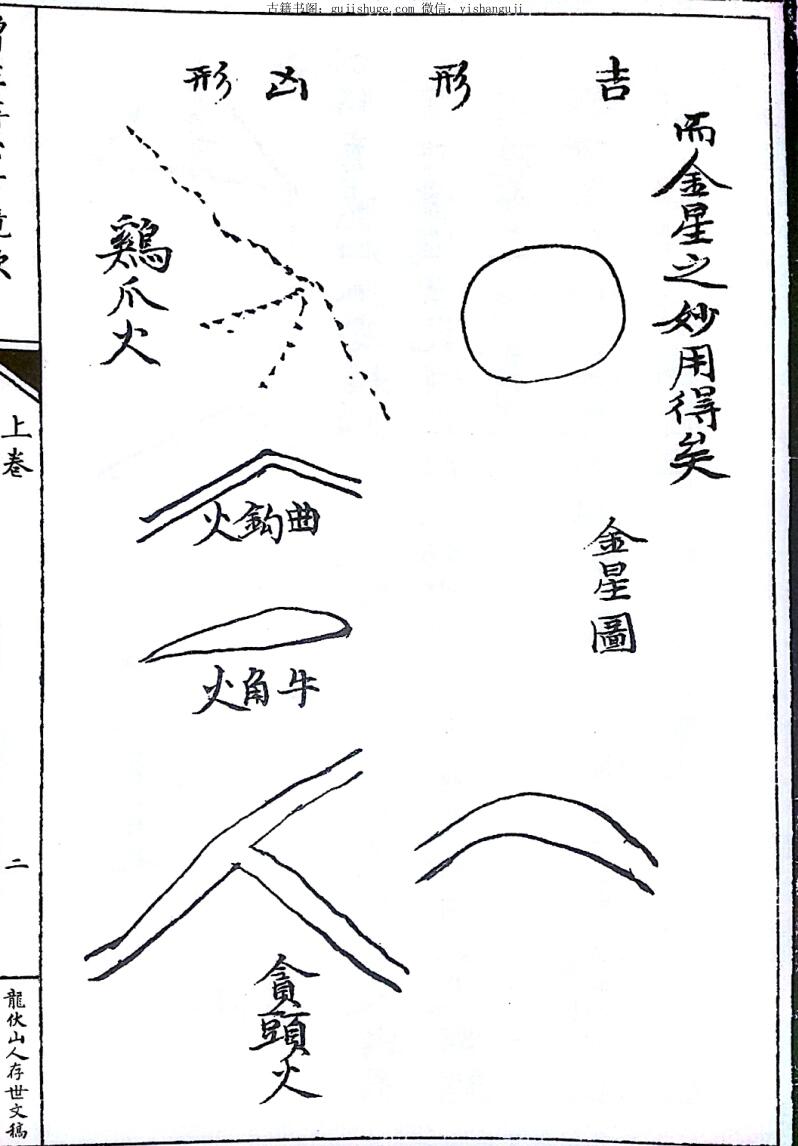 古籍书阁：gujishuge.com 微信：yishanguji
而金星之妙用得矣
吉形
金星圖
凶形
鷄爪火
曲鈎火
牛角火
貪頭火
上卷
二
龍伏山人存世文稿